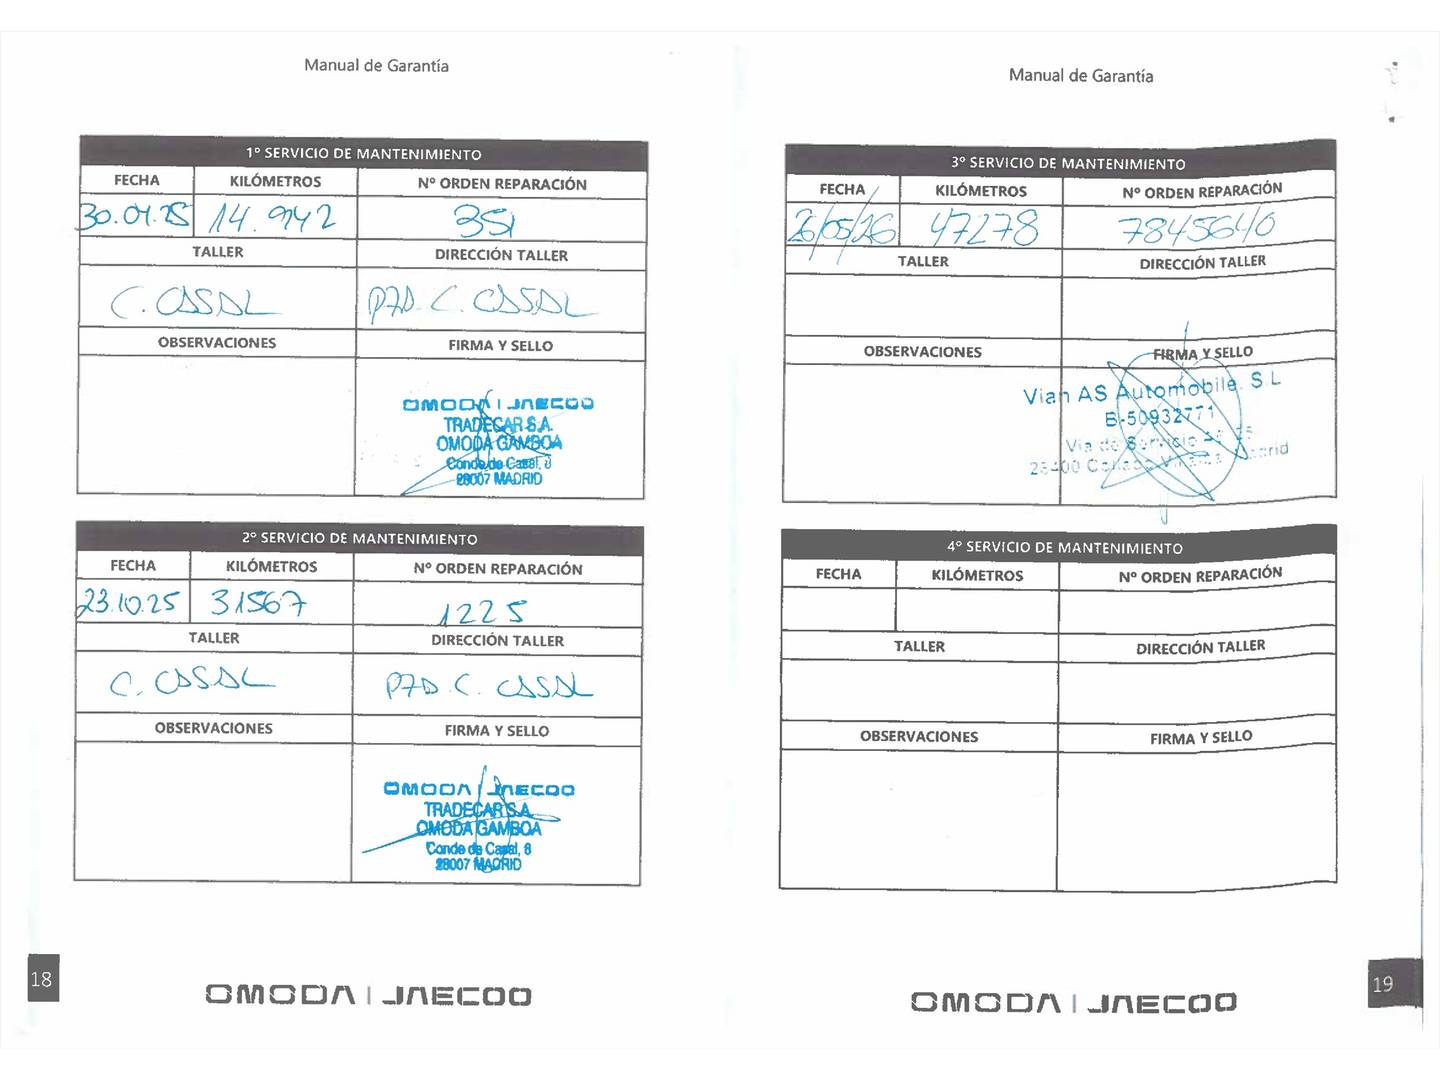 Manual de Garantía
1º SERVICIO DE MANTENIMIENTO
FECHA KILÓMETROS Nº ORDEN REPARACIÓN
30.04.25 14.942 351
TALLER DIRECCIÓN TALLER
C. CASAL C. CASAL
OBSERVACIONES FIRMA Y SELLO
OMODA | JAECOO
TRADECAR S.A.
OMODA GAMBOA
Conde de Casal, 8
28007 MADRID
2º SERVICIO DE MANTENIMIENTO
FECHA KILÓMETROS Nº ORDEN REPARACIÓN
23.10.25 31567 1225
TALLER DIRECCIÓN TALLER
C. CASAL C. CASAL
OBSERVACIONES FIRMA Y SELLO
OMODA | JAECOO
TRADECAR S.A.
OMODA GAMBOA
Conde de Casal, 8
28007 MADRID
18
OMODA | JAECOO
Manual de Garantía
3º SERVICIO DE MANTENIMIENTO
FECHA KILÓMETROS Nº ORDEN REPARACIÓN
26/05/26 47278 7845640
TALLER DIRECCIÓN TALLER
OBSERVACIONES FIRMA Y SELLO
Vian AS Automobile, S L
B-50932771
Via de Servicio
Madrid
4º SERVICIO DE MANTENIMIENTO
FECHA KILÓMETROS Nº ORDEN REPARACIÓN
TALLER DIRECCIÓN TALLER
OBSERVACIONES FIRMA Y SELLO
OMODA | JAECOO
19